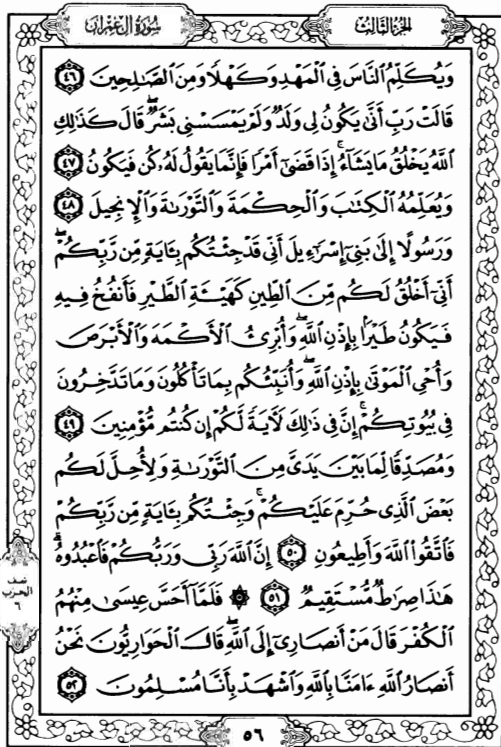 سُورَةُ آلِ عِمْرَانَ
الجُزْءُ الثَّالِثُ
وَيُكَلِّمُ ٱلنَّاسَ فِى ٱلْمَهْدِ وَكَهْلًا وَمِنَ ٱلصَّٰلِحِينَ ٤٦
قَالَتْ رَبِّ أَنَّىٰ يَكُونُ لِى وَلَدٌ وَلَمْ يَمْسَسْنِى بَشَرٌ ۖ قَالَ كَذَٰلِكِ
ٱللَّهُ يَخْلُقُ مَا يَشَآءُ ۚ إِذَا قَضَىٰٓ أَمْرًا فَإِنَّمَا يَقُولُ لَهُۥ كُن فَيَكُونُ ٤٧
وَيُعَلِّمُهُ ٱلْكِتَٰبَ وَٱلْحِكْمَةَ وَٱلتَّوْرَىٰةَ وَٱلْإِنجِيلَ ٤٨
وَرَسُولًا إِلَىٰ بَنِىٓ إِسْرَٰٓءِيلَ أَنِّى قَدْ جِئْتُكُم بِـَٔايَةٍ مِّن رَّبِّكُمْ ۖ
أَنِّىٓ أَخْلُقُ لَكُم مِّنَ ٱلطِّينِ كَهَيْـَٔةِ ٱلطَّيْرِ فَأَنفُخُ فِيهِ
فَيَكُونُ طَيْرًۢا بِإِذْنِ ٱللَّهِ ۖ وَأُبْرِئُ ٱلْأَكْمَهَ وَٱلْأَبْرَصَ
وَأُحْىِ ٱلْمَوْتَىٰ بِإِذْنِ ٱللَّهِ ۖ وَأُنَبِّئُكُم بِمَا تَأْكُلُونَ وَمَا تَدَّخِرُونَ
فِى بُيُوتِكُمْ ۚ إِنَّ فِى ذَٰلِكَ لَـَٔايَةً لَّكُمْ إِن كُنتُم مُّؤْمِنِينَ ٤٩
وَمُصَدِّقًا لِّمَا بَيْنَ يَدَىَّ مِنَ ٱلتَّوْرَىٰةِ وَلِأُحِلَّ لَكُم
بَعْضَ ٱلَّذِى حُرِّمَ عَلَيْكُمْ ۚ وَجِئْتُكُم بِـَٔايَةٍ مِّن رَّبِّكُمْ
فَٱتَّقُوا۟ ٱللَّهَ وَأَطِيعُونِ ٥٠ إِنَّ ٱللَّهَ رَبِّى وَرَبُّكُمْ فَٱعْبُدُوهُ ۗ
هَٰذَا صِرَٰطٌ مُّسْتَقِيمٌ ٥١ ۞ فَلَمَّآ أَحَسَّ عِيسَىٰ مِنْهُمُ
ٱلْكُفْرَ قَالَ مَنْ أَنصَارِىٓ إِلَى ٱللَّهِ ۖ قَالَ ٱلْحَوَارِيُّونَ نَحْنُ
أَنصَارُ ٱللَّهِ ءَامَنَّا بِٱللَّهِ وَٱشْهَدْ بِأَنَّا مُسْلِمُونَ ٥٢
نصف
الحزب
٦
٥٦